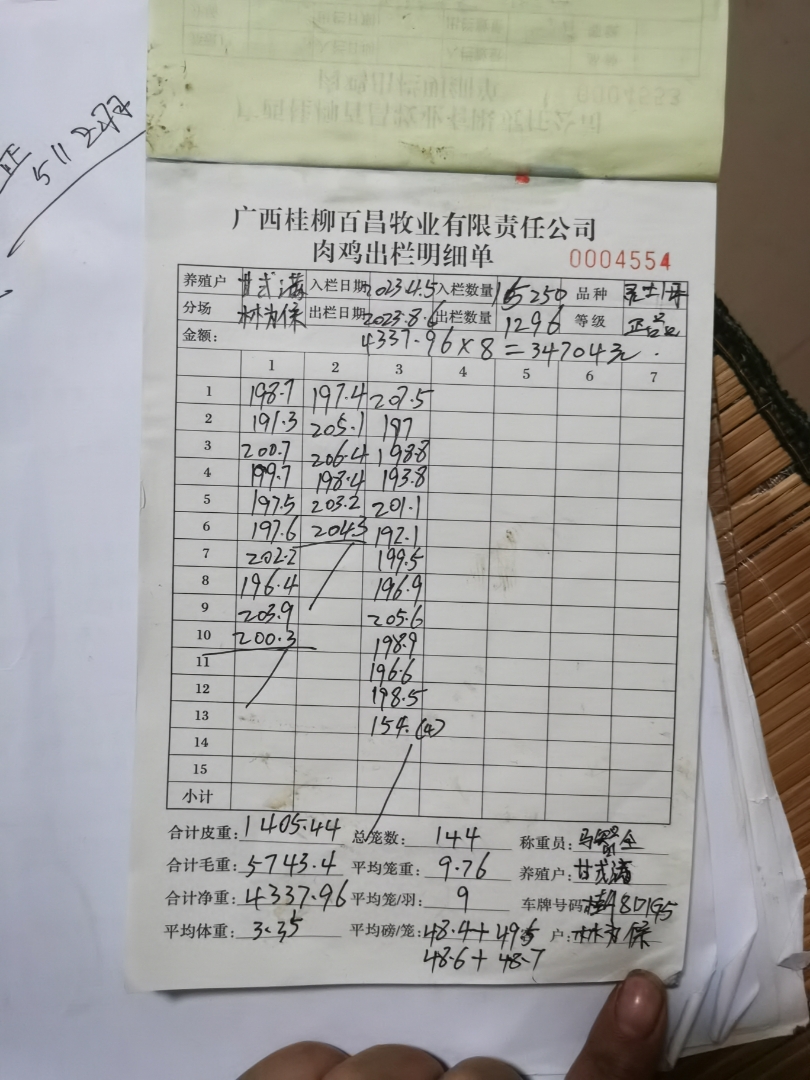 511277
广西桂柳百昌牧业有限责任公司
肉鸡出栏明细单 0004554
养殖户 甘武满 入栏日期 2023.4.5 入栏数量 15250 品种
分场 林为保 出栏日期 2023.8.6 出栏数量 1296 等级 正品
金额: 4337.96×8=34704元.
1 2 3 4 5 6 7
1 198.7 197.4 207.5
2 191.3 205.1 197
3 200.7 206.4 198.8
4 199.7 198.4 193.8
5 197.5 203.2 201.1
6 197.6 204.3 192.1
7 202.2 199.5
8 196.4 196.9
9 203.9 205.6
10 200.3 198.9
11 196.6
12 198.5
13 154.(4)
14
15
小计
合计皮重: 1405.44 总笼数: 144 称重员:
合计毛重: 5743.4 平均笼重: 9.76 养殖户: 甘武满
合计净重: 4337.96 平均笼/羽: 9 车牌号码:
平均体重: 3.35 平均磅/笼: 48.4+49.5 户: 林为保
48.6+48.7